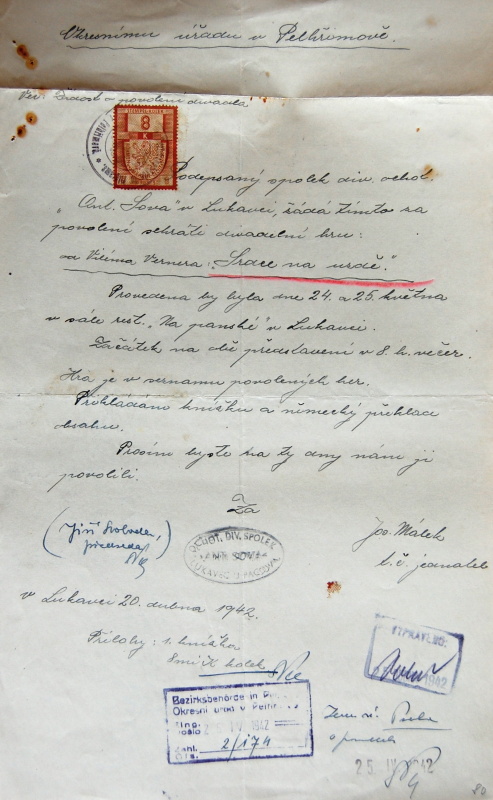 Okresnímu úřadu v Pelhřimově.
Věc: Žádost o povolení divadla.
STEMPEL-KOLEK
8
K
Podepsaný spolek div. ochot.
„Ant. Sova" v Lukavci, žádá tímto za
povolení sehráti divadelní hru:
od Viléma Vernera: „Srdce na
Provedena by byla dne 24. a 25. května
v sále rest. „Na panské" v Lukavci.
Začátek na obě představení v 8. h. večer.
Hra je v seznamu povolených her.
Přikládáno knížku a německý překlad
obsahu.
Prosím byste na ty dny nám ji
povolili.
Za
(Jiří Svoboda,
předseda)
OCHOT. DIV. SPOLEK
„ANT. SOVA"
LUKAVEC U PACOVA
Jos. Málek
t.č. jednatel
v Lukavci 20. dubna 1942.
Přílohy: 1. knížka
kolek
VYPRAVENO:
1942
Bezirksbehörde in
Okresní úřad v Pelhř
Eing.
Došlo 2 IV 1942
Zahl
Čís. 2/174
25. IV. 1942
80